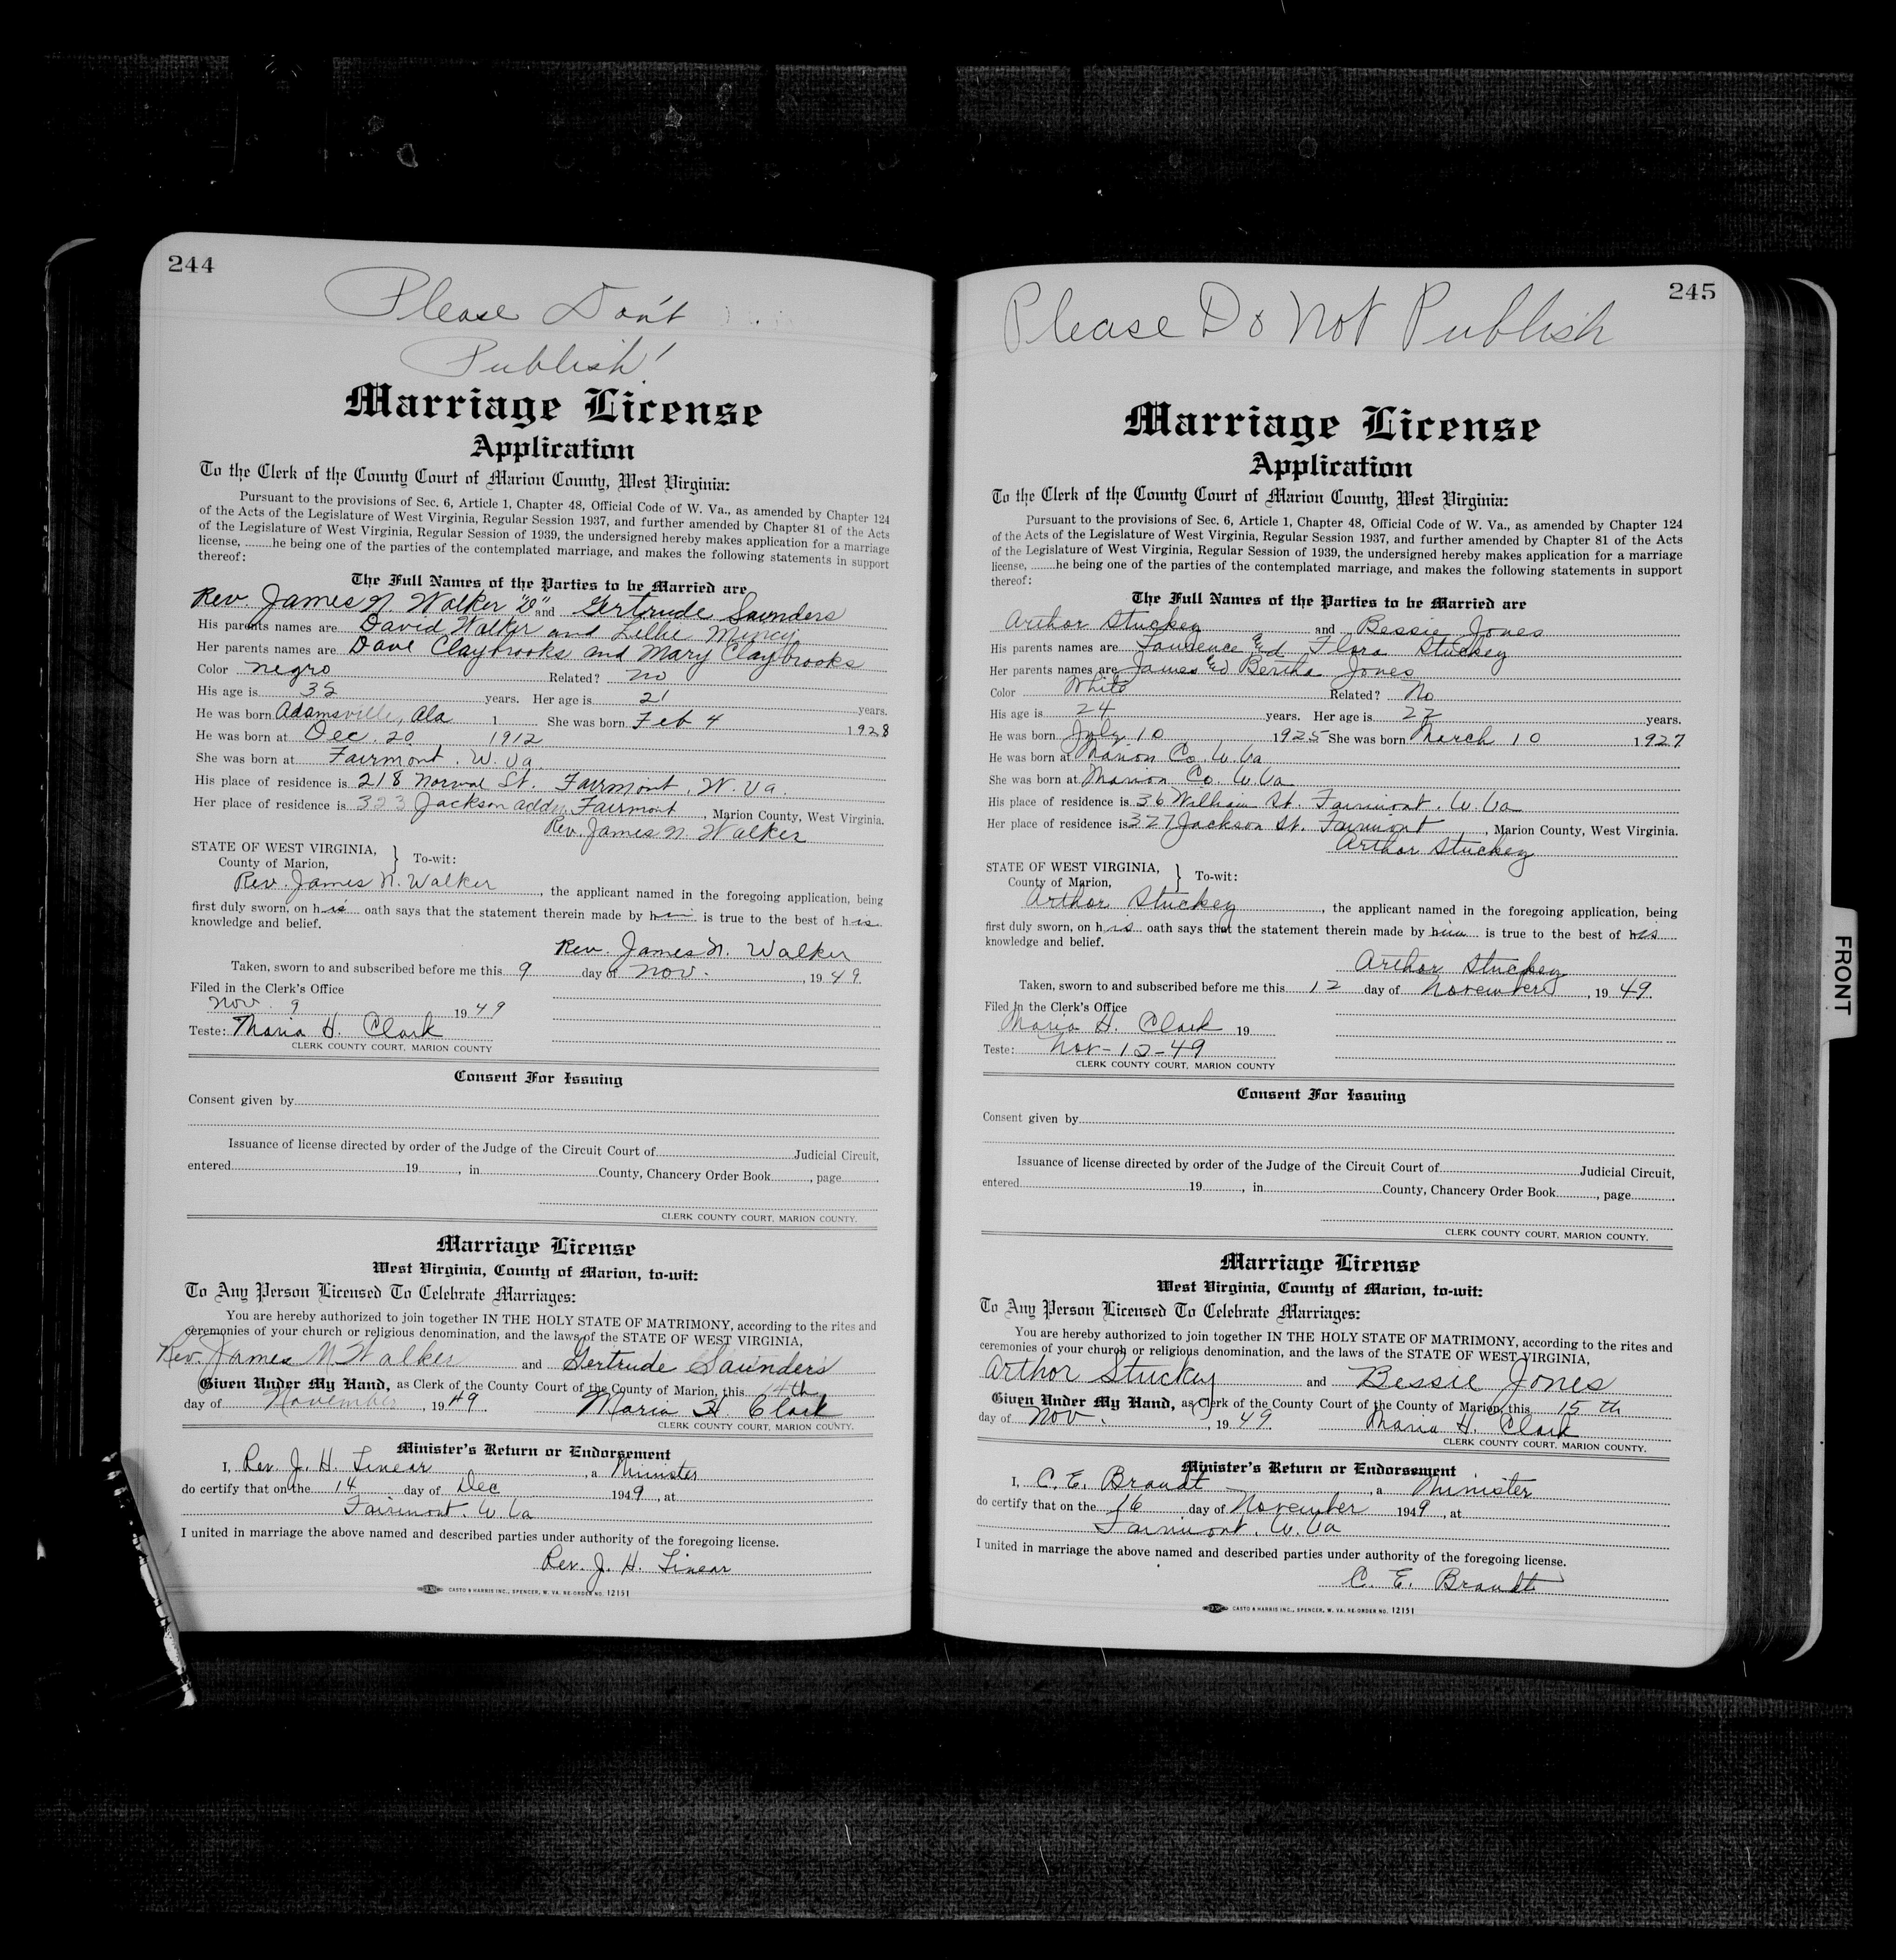 244
Please Don't
Publish!
Marriage License
Application
To the Clerk of the County Court of Marion County, West Virginia:
Pursuant to the provisions of Sec. 6, Article 1, Chapter 48, Official Code of W. Va., as amended by Chapter 124
of the Acts of the Legislature of West Virginia, Regular Session 1937, and further amended by Chapter 81 of the Acts
of the Legislature of West Virginia, Regular Session of 1939, the undersigned hereby makes application for a marriage
license, ........he being one of the parties of the contemplated marriage, and makes the following statements in support
thereof:
The Full Names of the Parties to be Married are
Rev. James N. Walker "D" and Gertrude Saunders
His parents names are David Walker and Lillie Mincy
Her parents names are Dave Claybrooks and Mary Claybrooks
Color negro Related? no
His age is 32 years. Her age is 21 years.
He was born Adamsville, Ala 1 She was born Feb 4 1928
He was born at Dec. 20 1912
She was born at Fairmont. W. Va.
His place of residence is 218 Norval St. Fairmont, W. Va.
Her place of residence is 323 Jackson addn, Fairmont, Marion County, West Virginia.
Rev. James N. Walker
STATE OF WEST VIRGINIA,
County of Marion, } To-wit:
Rev. James N. Walker, the applicant named in the foregoing application, being
first duly sworn, on his oath says that the statement therein made by him is true to the best of his
knowledge and belief.
Rev. James N. Walker
Taken, sworn to and subscribed before me this 9 day of Nov., 1949.
Filed in the Clerk's Office
Nov. 9 1949
Teste: Maria H. Clark
CLERK COUNTY COURT, MARION COUNTY
Consent For Issuing
Consent given by
Issuance of license directed by order of the Judge of the Circuit Court of Judicial Circuit,
entered 19, in County, Chancery Order Book, page
CLERK COUNTY COURT, MARION COUNTY.
Marriage License
West Virginia, County of Marion, to-wit:
To Any Person Licensed To Celebrate Marriages:
You are hereby authorized to join together IN THE HOLY STATE OF MATRIMONY, according to the rites and
ceremonies of your church or religious denomination, and the laws of the STATE OF WEST VIRGINIA,
Rev. James N. Walker and Gertrude Saunders
Given Under My Hand, as Clerk of the County Court of the County of Marion, this 14th
day of November, 1949. Maria H. Clark
CLERK COUNTY COURT, MARION COUNTY.
Minister's Return or Endorsement
I, Rev. J. H. Linear, a Minister
do certify that on the 14 day of Dec 1949, at
Fairmont. W. Va
I united in marriage the above named and described parties under authority of the foregoing license.
Rev. J. H. Linear
CASTO & HARRIS INC., SPENCER, W. VA. RE-ORDER NO. 12151
245
Please Do Not Publish
Marriage License
Application
To the Clerk of the County Court of Marion County, West Virginia:
Pursuant to the provisions of Sec. 6, Article 1, Chapter 48, Official Code of W. Va., as amended by Chapter 124
of the Acts of the Legislature of West Virginia, Regular Session 1937, and further amended by Chapter 81 of the Acts
of the Legislature of West Virginia, Regular Session of 1939, the undersigned hereby makes application for a marriage
license, ........he being one of the parties of the contemplated marriage, and makes the following statements in support
thereof:
The Full Names of the Parties to be Married are
Arthor Stuckey and Bessie Jones
His parents names are Lawrence Ed Flora Stuckey
Her parents names are James Ed Bertha Jones
Color White Related? No
His age is 24 years. Her age is 22 years.
He was born July 10 1925 She was born March 10 1927
He was born at Marion Co. W. Va
She was born at Marion Co. W. Va
His place of residence is 36 William St. Fairmont. W. Va
Her place of residence is 327 Jackson St. Fairmont, Marion County, West Virginia.
Arthor Stuckey
STATE OF WEST VIRGINIA,
County of Marion, } To-wit:
Arthor Stuckey, the applicant named in the foregoing application, being
first duly sworn, on his oath says that the statement therein made by him is true to the best of his
knowledge and belief.
Arthor Stuckey
Taken, sworn to and subscribed before me this 12 day of November, 1949.
Filed in the Clerk's Office
Maria H. Clark 19
Teste: Nov-12-49
CLERK COUNTY COURT, MARION COUNTY
Consent For Issuing
Consent given by
Issuance of license directed by order of the Judge of the Circuit Court of Judicial Circuit,
entered 19, in County, Chancery Order Book, page
CLERK COUNTY COURT, MARION COUNTY.
Marriage License
West Virginia, County of Marion, to-wit:
To Any Person Licensed To Celebrate Marriages:
You are hereby authorized to join together IN THE HOLY STATE OF MATRIMONY, according to the rites and
ceremonies of your church or religious denomination, and the laws of the STATE OF WEST VIRGINIA,
Arthor Stuckey and Bessie Jones
Given Under My Hand, as Clerk of the County Court of the County of Marion, this 15 th
day of Nov., 1949. Maria H. Clark
CLERK COUNTY COURT, MARION COUNTY.
Minister's Return or Endorsement
I, C. E. Brandt, a Minister
do certify that on the 16 day of November 1949, at
Fairmont. W. Va
I united in marriage the above named and described parties under authority of the foregoing license.
C. E. Brandt
CASTO & HARRIS INC., SPENCER, W. VA. RE-ORDER NO. 12151
FRONT